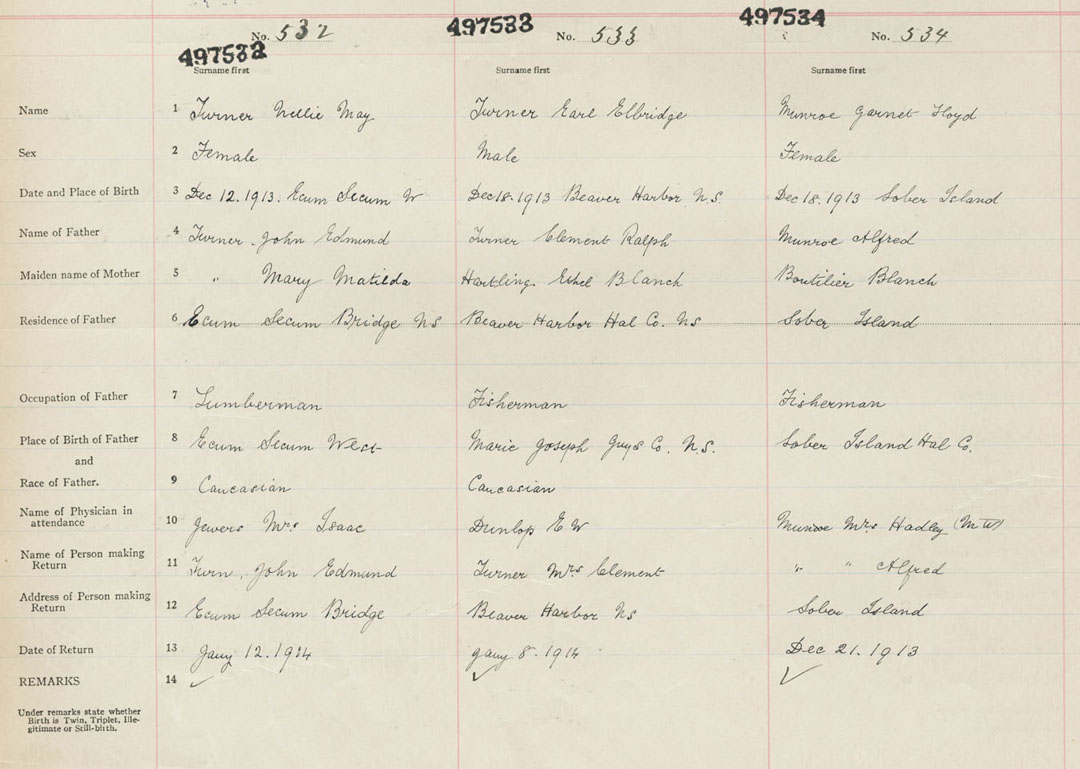 No. 532 497533 No. 533 497534 No. 534
497532
Surname first Surname first Surname first
Name 1 Turner Nellie May Turner Earl Elbridge Munroe Garnet Floyd
Sex 2 Female Male Female
Date and Place of Birth 3 Dec 12.1913. Ecum Secum W Dec 18.1913 Beaver Harbor N.S. Dec 18.1913 Sober Island
Name of Father 4 Turner John Edmund Turner Clement Ralph Munroe Alfred
Maiden name of Mother 5 " Mary Matilda Hartling Ethel Blanch Boutilier Blanch
Residence of Father 6 Ecum Secum Bridge NS Beaver Harbor Hal Co. NS Sober Island
Occupation of Father 7 Lumberman Fisherman Fisherman
Place of Birth of Father 8 Ecum Secum West Marie Joseph Guys Co. N.S. Sober Island Hal Co.
and
Race of Father. 9 Caucasian Caucasian
Name of Physician in
attendance 10 Jewers Mrs Isaac Dunlop E W Munroe Mrs Hadley (M W)
Name of Person making
Return 11 Turn, John Edmund Turner Mrs Clement " " Alfred
Address of Person making
Return 12 Ecum Secum Bridge Beaver Harbor NS Sober Island
Date of Return 13 Jany 12.1914 Jany 8.1914 Dec 21.1913
REMARKS 14 ✓ ✓ ✓
Under remarks state whether
Birth is Twin, Triplet, Ille-
gitimate or Still-birth.